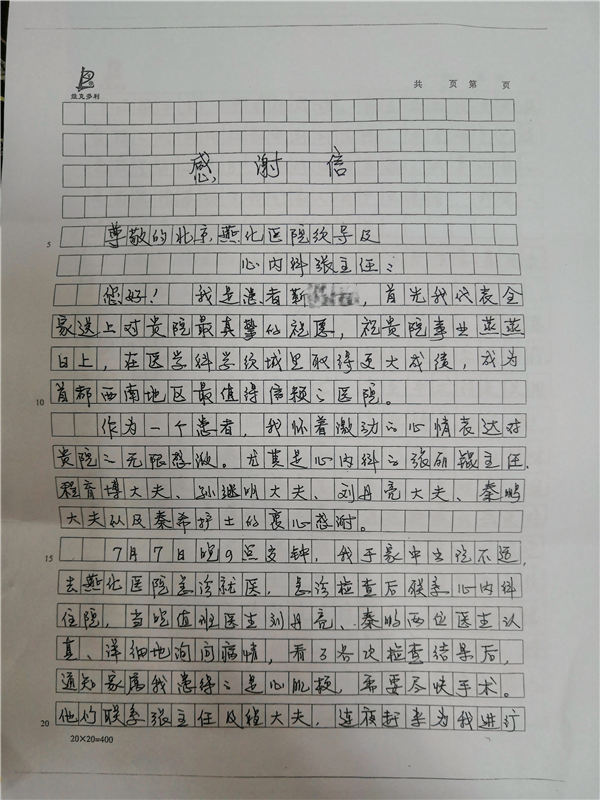 维克多利
共 页 第 页
感谢信
5 尊敬的北京燕化医院领导及
心内科张主任:
您好！我是患者靳，首先我代表全
家送上对贵院最真挚的祝愿，祝贵院事业蒸蒸
日上，在医学科学领域里取得更大成绩，成为
10 首都西南地区最值得信赖之医院。
作为一个患者，我怀着激动之心情表达对
贵院之无限感激。尤其是心内科之张主任、
程育博大夫、孙继明大夫、刘丹亮大夫、秦鹏
大夫以及秦希护士的衷心感谢。
15 7月7日晚9点多钟，我于家中出现不适，
去燕化医院急诊就医，急诊检查后联系心内科
住院，当晚值班医生刘丹亮、秦鹏两位医生认
真、详细地询问病情，看了各次检查结果后，
通知家属我患得之是心肌梗，需要尽快手术。
20 他们联系张主任及程大夫，连夜赶来为我进行
20×20=400